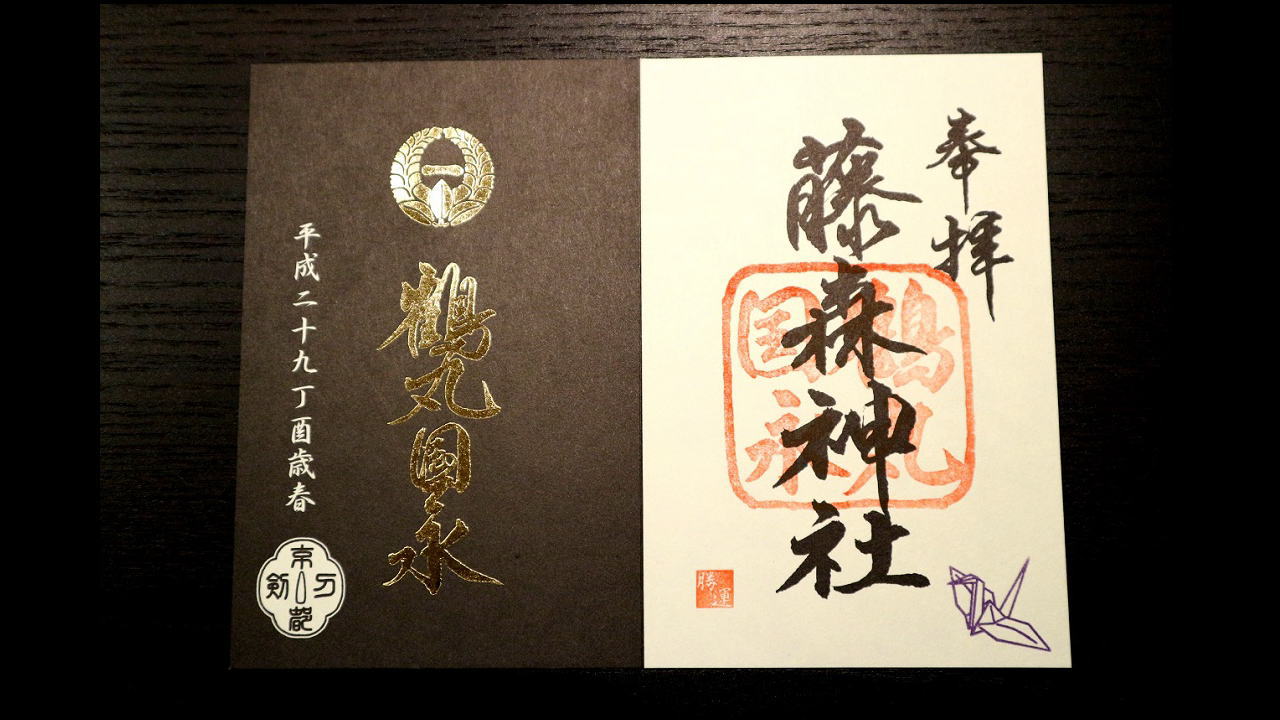 奉拝
藤森神社
鶴丸
国永
勝運
鶴丸国永
平成二十九丁酉歳春
京都
刀剣